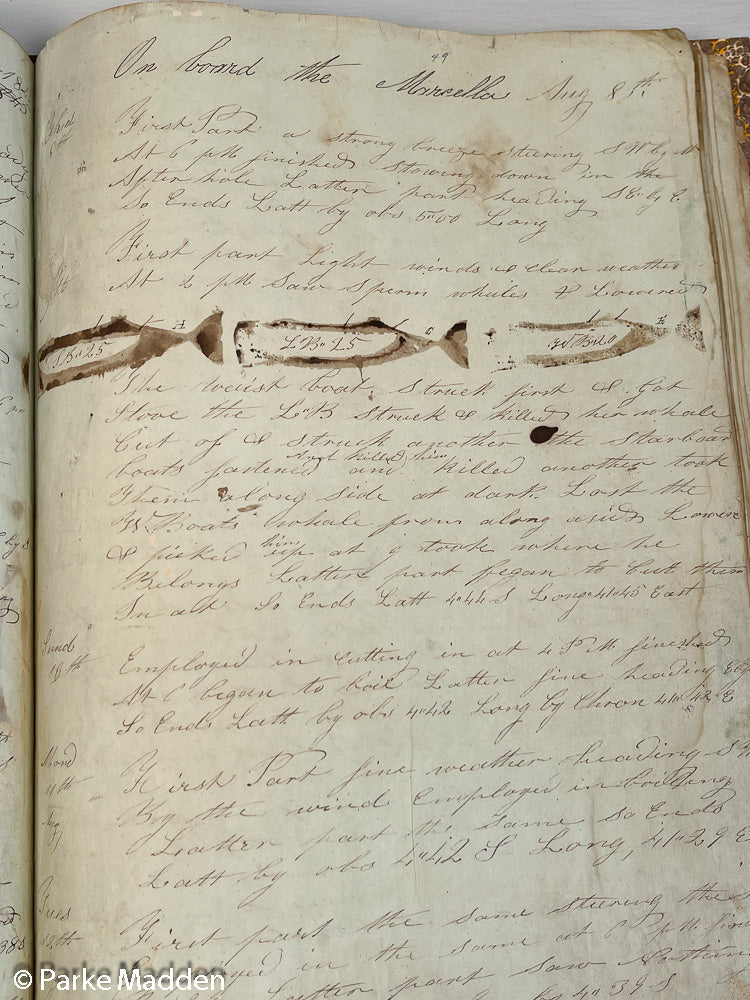 49
On board the Marcella Aug 8th
First Part a strong breeze steering S W by W
At 6 PM finished stowing down in the
After hole Latter part heading S E by E
So Ends Latt by obs 5"00 Long
First part Light winds & clear weather
At 2 PM Saw Sperm whales & Lowered
LB 25
LB 25
WB 20
The waist boat Struck first & got
Stove the L"B Struck & killed her whale
Cut of & struck another the starboard
boats fastened and killed another took
and killed him
Them along side at dark. Lost the
Boats whale from along aside Lowered
& picked him up at 9 took where he
Belongs Latter part began to cut them
In all So Ends Latt 4"44 S Long 41"45 East
Sund
10th
Employed in cutting in at 4 P M finished
At 6 began to boil Latter fine heading
So Ends Latt by obs 4"42 Long by Chron 41"42 E
Mond
11th
Aug
First Part fine weather heading S
By the wind Employed in boiling
Latter part the same So Ends
Latt by obs 4"42 S Long, 41"29 E
Tues
12th
First part the same steering the
Employed in the same at 6 PM
Latter part saw
by obs 4"39 S
© Parke Madden